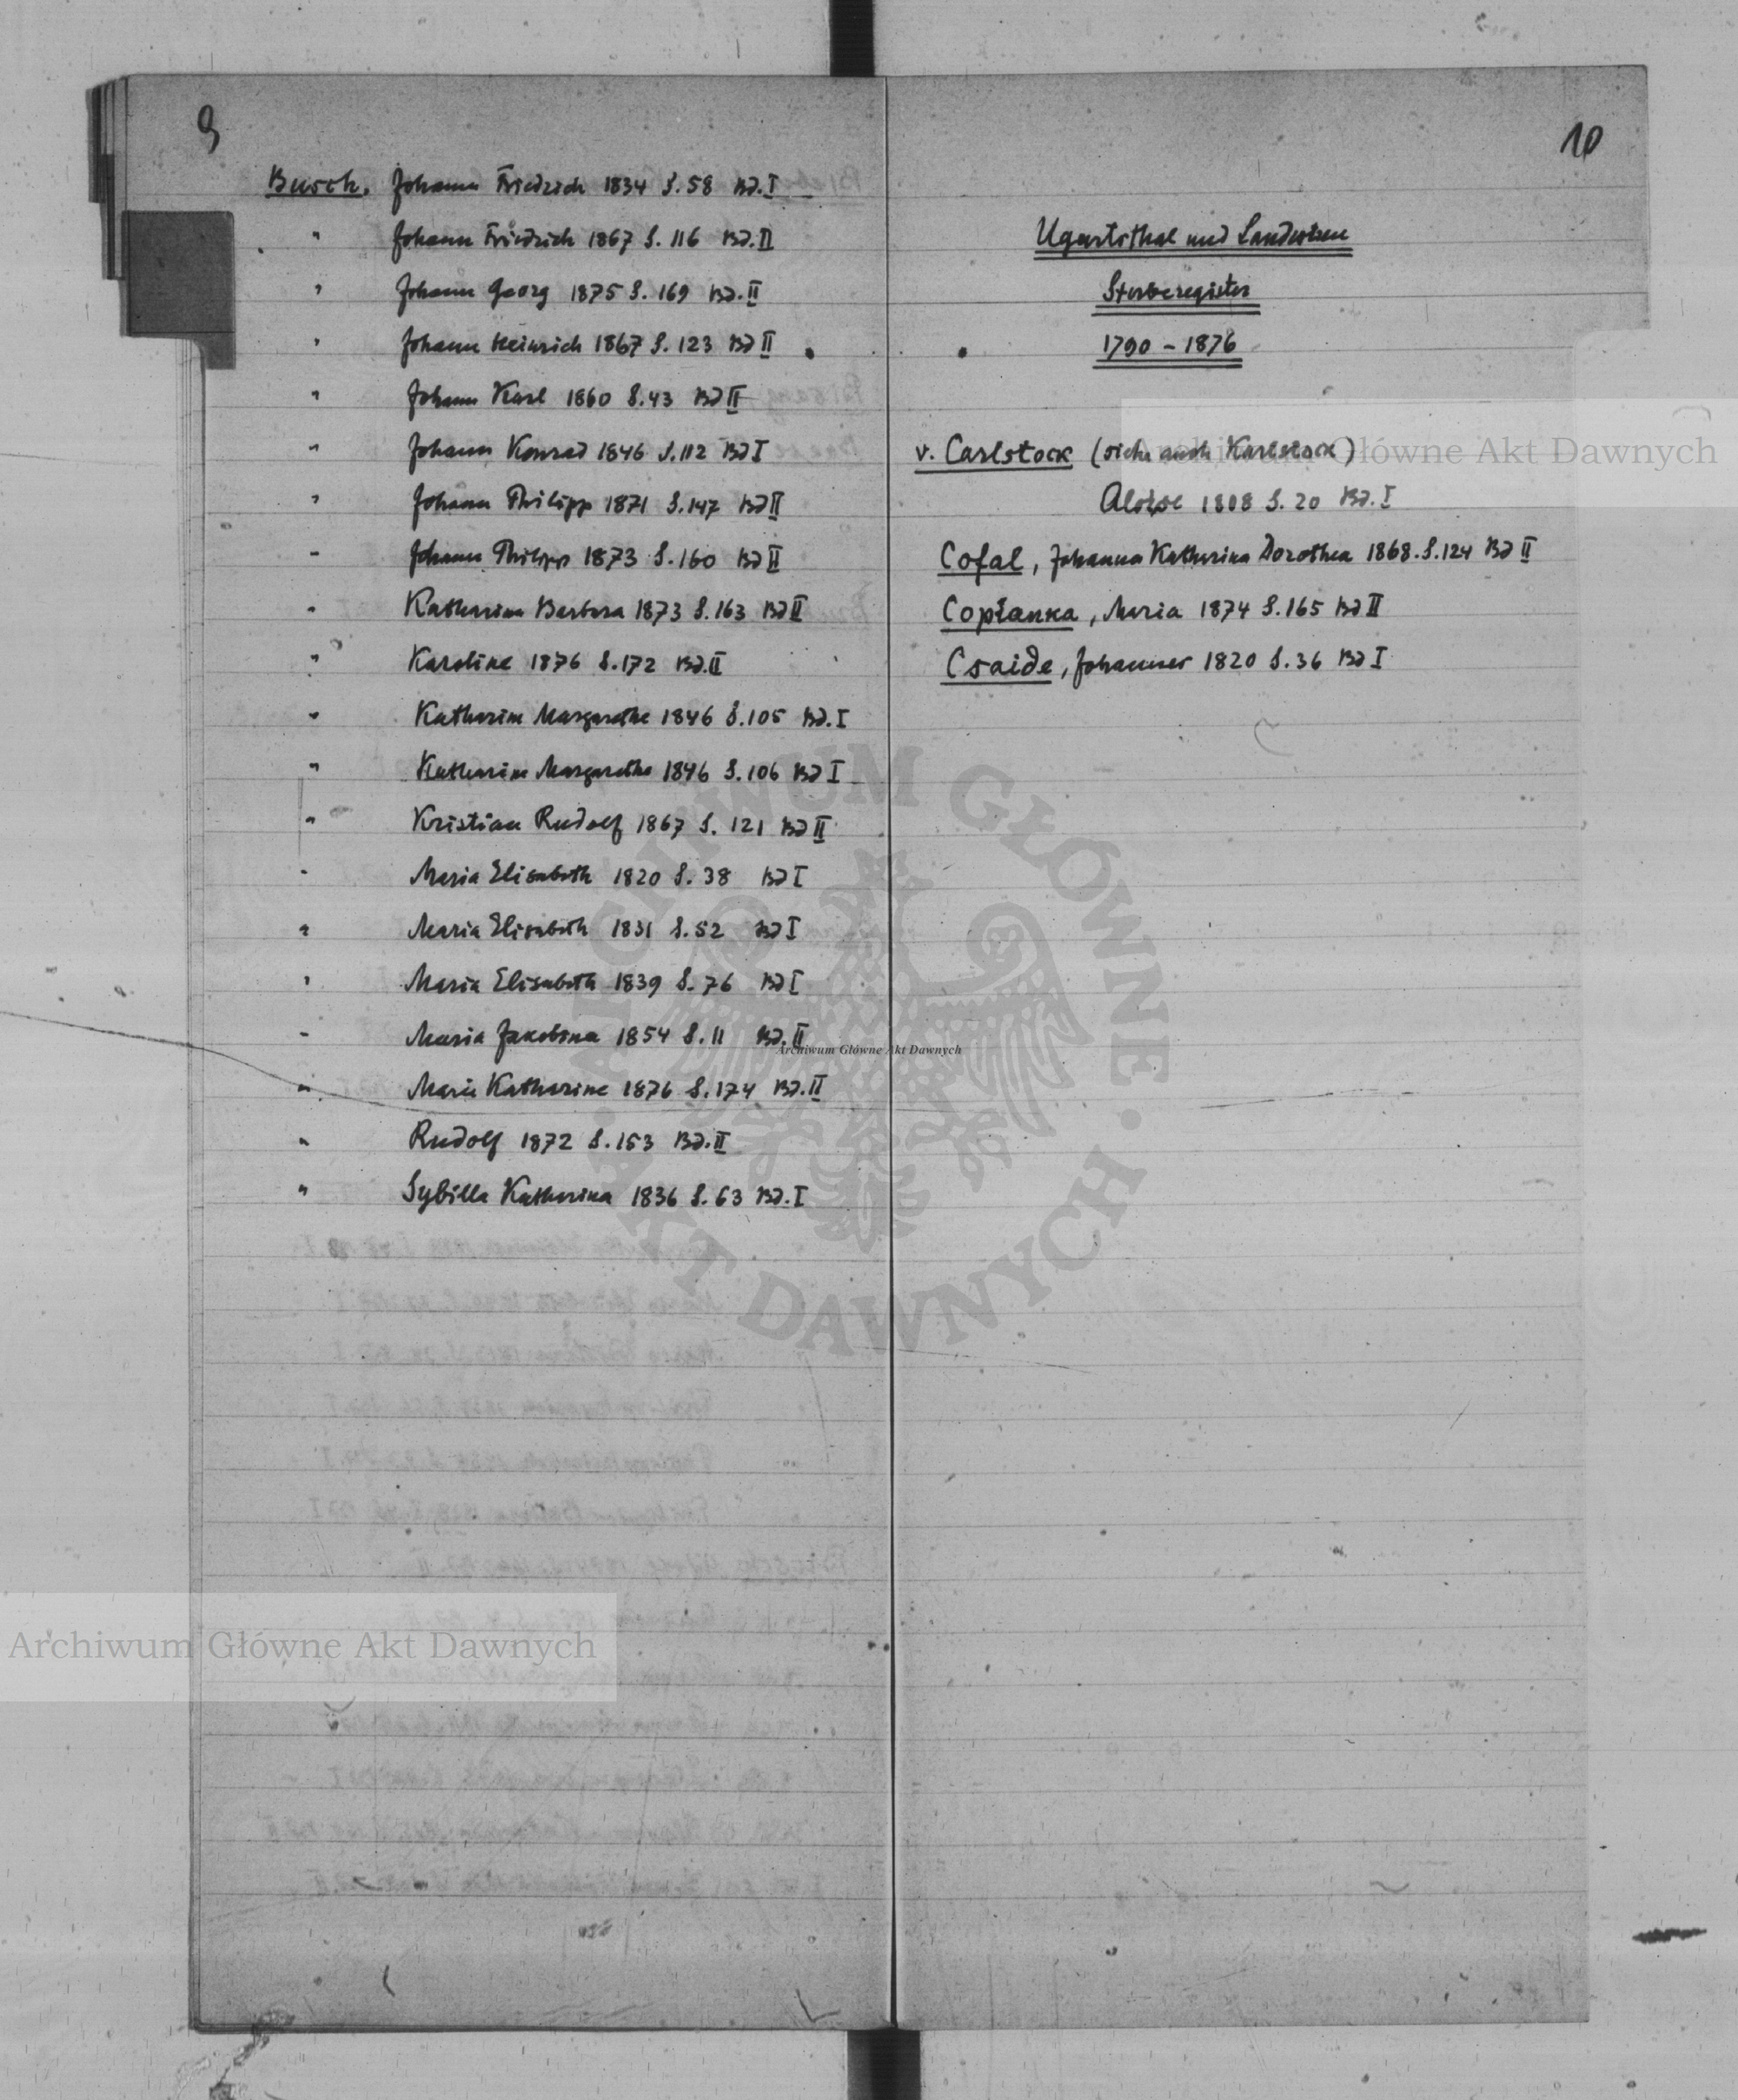 9
Busch, Johann Friedrich 1834 S.58 Bd.I
" Johann Friedrich 1867 S. 116 Bd.II
" Johann Georg 1875 S. 169 Bd.II
" Johann Heinrich 1867 S. 123 Bd II
" Johann Karl 1860 S.43 Bd II
" Johann Konrad 1846 S.112 Bd I
" Johann Philipp 1871 S.147 Bd II
" Johann Philipp 1873 S.160 Bd II
" Katharina Barbara 1873 S.163 Bd II
" Karoline 1876 S.172 Bd.II
" Katharina Margarethe 1846 S.105 Bd.I
" Katharina Margarethe 1846 S.106 Bd I
" Kristian Rudolf 1867 S. 121 Bd II
" Maria Elisabeth 1820 S. 38 Bd I
" Maria Elisabeth 1831 S.52 Bd I
" Maria Elisabeth 1839 S. 76 Bd I
" Maria Jakobina 1854 S.11 Bd.II
" Marie Katharine 1876 S.174 Bd.II
" Rudolf 1872 S.153 Bd.II
" Sybilla Katharina 1836 S.63 Bd.I
10
Ugartsthal und Landestreu
Sterberegister
1790 - 1876
v. Carlstock (siehe auch Karlstock)
Aloise 1808 S. 20 Bd. I
Cofal, Johanna Katharina Dorothea 1868 S.124 Bd II
Copłanka, Maria 1874 S.165 Bd II
Csaide, Johannes 1820 S.36 Bd I
Archiwum Główne Akt Dawnych
ARCHIWUM GŁÓWNE · AKT DAWNYCH ·
Archiwum Główne Akt Dawnych
Archiwum Główne Akt Dawnych